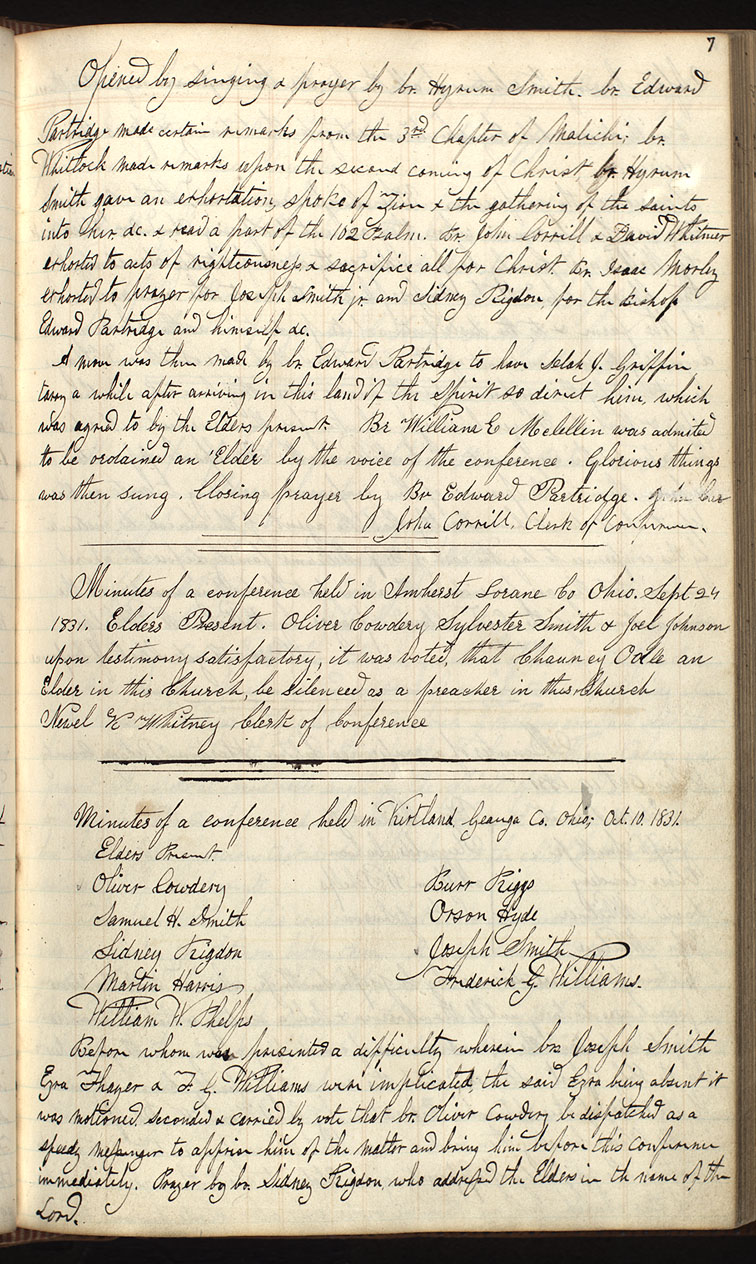 7
Opened by singing & prayer by br. Hyrum Smith. br. Edward
Partridge made certain remarks from the 3rd Chapter of Malichi; br.
Whitlock made remarks upon the second coming of Christ br. Hyrum
Smith gave an exhortation, spoke of Zion & the gathering of the saints
into her &c. & read a part of the 102 Psalm. Br. John Corrill & David Whitmer
exhorted to acts of righteousness & sacrifice all for Christ. Br. Isaac Morley
exhorted to prayer for Joseph Smith jr. and Sidney Rigdon, for the Bishop
Edward Partridge and himself &c.
A move was then made by br. Edward Partridge to have Selah J. Griffin
tarry a while after arriving in this land if the Spirit so direct him, which
was agreed to by the Elders present. Br William E Mclellin was admited
to be ordained an Elder by the voice of the conference. Glorious things
was then sung. Closing prayer by Br Edward Partridge. John Cor
John Corrill, Clerk of Conference.
Minutes of a conference held in Amherst Lorane Co Ohio. Sept 24
1831. Elders Present. Oliver Cowdery Sylvester Smith & Joel Johnson
upon testimony satisfactory, it was voted, that Chauncy Odle an
Elder in this Church, be silenced as a preacher in this Church
Newel K Whitney Clerk of Conference
Minutes of a conference held in Kirtland, Geauga Co. Ohio; Oct. 10. 1831.
Elders Present.
Oliver Cowdery Burr Riggs
Samuel H. Smith Orson Hyde
Sidney Rigdon Joseph Smith
Martin Harris Frederick G. Williams.
William W. Phelps
Before whom was presented a difficulty wherein brs Joseph Smith
Ezra Thayer & F. G. Williams were implicated, the said Ezra being absent it
was motioned, seconded & carried by vote that br. Oliver Cowdery be dispatched as a
speedy messenger to apprise him of the matter and bring him before this conference
immediately. Prayer by br. Sidney Rigdon who addressed the Elders in th name of the
Lord.